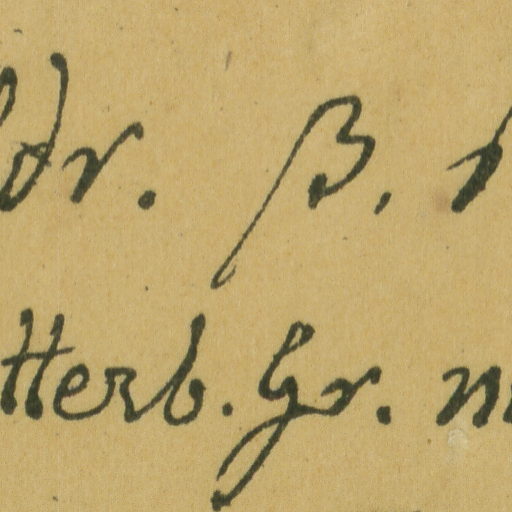 dr. β.
Herb. Gr.